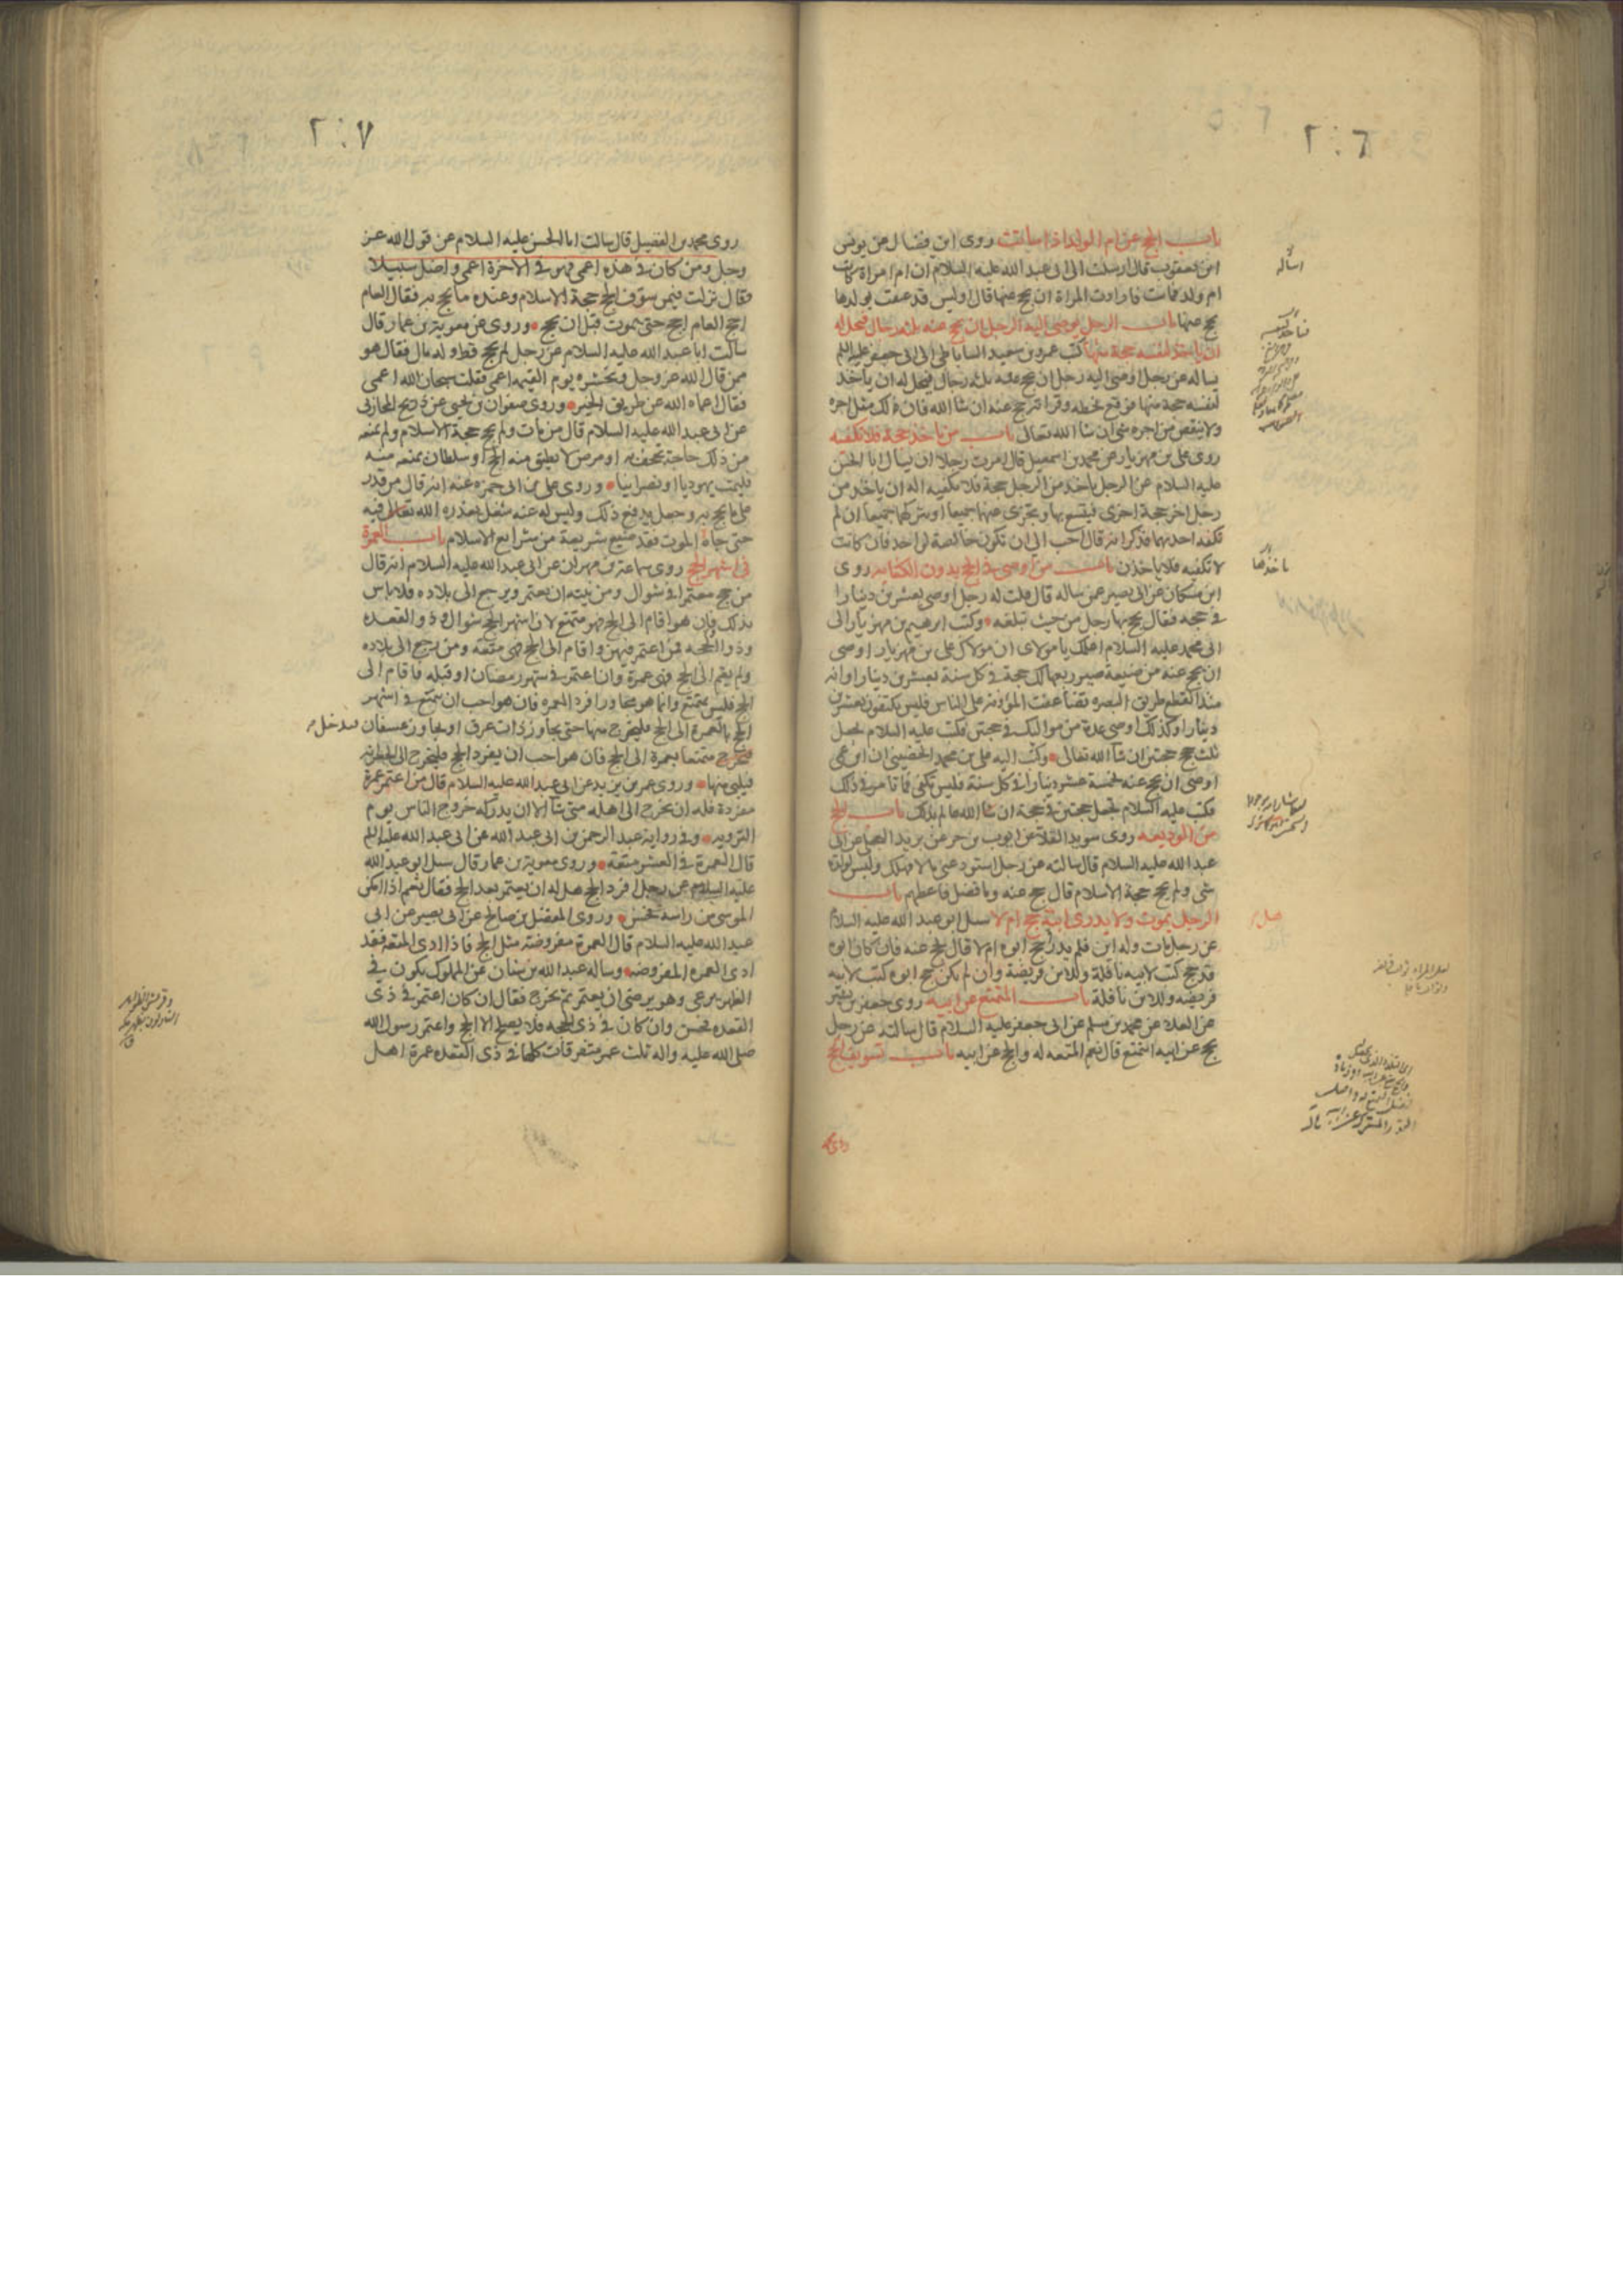 ٢٠٦
باب الحج عن ام الولد اذا ماتت روى ابن فضال عن يونس
ابن يعقوب قال ارسلت الى ابى عبد الله عليه السلام ان ام امراة كانت
ام ولد فماتت فارادت المراة ان يحج عنها قال اوليس قد عتقت بولدها
يحج عنها باب الرجل يوصى اليه الرجل ان يحج عنه ثلثه رجال فيحل له
ان ياخذ لنفسه حجة منها كتب عمرو بن سعيد الساباطى الى ابى جعفر عليه السلم
يساله عن رجل اوصى اليه رجل ان يحج عنه ثلثه رجال فيحل له ان ياخذ
لنفسه حجة منها فوقع بخطه وقراته حج عنه ان شا الله فان لك مثل اجره
ولا ينقص من اجره شى ان شا الله تعالى باب من ياخذ حجة فلا تكفيه
روى على بن مهزيار عن محمد بن اسمعيل قال امرت رجلا ان يسال ابا الحسن
عليه السلام عن الرجل ياخذ من الرجل حجة فلا تكفيه اله ان ياخذ من
رجل اخر حجة اخرى فيتسع بها ويجزى عنهما جميعا او يتركهما جميعا ان لم
تكفه احديهما فذكر انه قال احب الى ان تكون خالصة لواحد فان كانت
لا تكفيه فلا ياخذن باب من اوصى فى الحج بدون الكفايه روى
ابن مسكان عن ابى بصير عمن ساله قال قلت له رجل اوصى بعشرين دينارا
فى حجه فقال يحج بها رجل من حيث تبلغه وكتب ابرهيم بن مهزيار الى
ابى محمد عليه السلام اعلمك يا مولاى ان مولاك على بن مهزيار اوصى
ان يحج عنه من ضيعة صير ربعها لك حجة فى كل سنة بعشرين دينارا وانه
منذ انقطع طريق البصره تضاعفت المؤونة على الناس فليس يكتفون بعشرين
دينارا وكذلك اوصى عدة من مواليك فى حجتين فكتب عليه السلام يجعل
ثلث حجج حجتين ان شا الله تعالى وكتب اليه على بن محمد الحضينى ان ابن عمى
اوصى ان يحج عنه بخمسة عشر دينارا فى كل سنة فليس تكفى فما تامر فى ذلك
فكتب عليه السلام تجعل حجتين فى حجة ان شا الله عالم بذلك باب الحج
من الوديعه روى سويد القلا عن ايوب بن حر عن بريد العجلى عن ابى
عبد الله عليه السلام قال سالته عن رجل استودعنى مالا فهلك وليس لولده
شى ولم يحج حجة الاسلام قال حج عنه وما فضل فاعطهم باب
الرجل يموت ولا يدرى ابنه حج ام لا سئل ابو عبد الله عليه السلام
عن رجل مات وله ابن فلم يدر حج ابوه ام لا قال يحج عنه فان كان ابوه
قد حج كتب لابيه نافلة وللابن فريضة وان لم يكن حج ابوه كتب لابيه
فريضه وللابن نافلة باب المتمتع عن ابيه روى جعفر بن بشير
عن العلا عن محمد بن مسلم عن ابى جعفر عليه السلام قال سالته عن رجل
يحج عن ابيه ايتمتع قال نعم المتعه له والحج عن ابيه باب تسويف الحج
٢٠٧
روى محمد بن الفضيل قال سالت ابا الحسن عليه السلام عن قول الله عز
وجل ومن كان فى هذه اعمى فهو فى الاخرة اعمى واضل سبيلا
فقال نزلت فيمن سوف الحج حجة الاسلام وعنده ما يحج به فقال العام
احج العام احج حتى يموت قبل ان يحج وروى عن معوية بن عمار قال
سالت ابا عبد الله عليه السلام عن رجل لم يحج قط وله مال فقال هو
ممن قال الله عز وجل ونحشره يوم القيمه اعمى فقلت سبحان الله اعمى
فقال اعماه الله عن طريق الخير وروى صفوان بن يحيى عن ذريح المحاربى
عن ابى عبد الله عليه السلام قال من مات ولم يحج حجة الاسلام ولم يمنعه
من ذلك حاجة تجحف به او مرض لا يطيق منه الحج او سلطان يمنعه منه
فليمت يهوديا او نصرانيا وروى على بن ابى حمزه عنه انه قال من قدر
على ما يحج به وجعل يدفع ذلك وليس له عنه شغل يعذره الله تعالى فيه
حتى جاه الموت فقد ضيع شريعة من شرايع الاسلام باب العمرة
فى اشهر الحج روى سماعة بن مهران عن ابى عبد الله عليه السلام انه قال
من حج معتمرا فى شوال ومن نيته ان يعتمر ويرجع الى بلاده فلا باس
بذلك فان هو اقام الى الحج فهو متمتع لان اشهر الحج شوال وذو القعده
وذو الحجه فمن اعتمر فيهن واقام الى الحج فهى متعه ومن رجع الى بلاده
ولم يقم الى الحج فهى عمرة وان اعتمر فى شهر رمضان او قبله فاقام الى
الحج فليس بمتمتع وانما هو مجاور افرد العمره فان هو احب ان يتمتع فى اشهر
الحج بالعمرة الى الحج فليخرج منها حتى يجاوز ذات عرق او يجاوز عسفان فيدخل
متمتعا بعمرة الى الحج فان هو احب ان يفرد الحج فليخرج الى الجعرانه
فيلبى منها وروى عمر بن يزيد عن ابى عبد الله عليه السلام قال من اعتمر عمرة
مفردة فله ان يخرج الى اهله متى شا الا ان يدركه خروج الناس يوم
الترويه وفى رواية عبد الرحمن بن ابى عبد الله عن ابى عبد الله عليه السلم
قال العمرة فى العشر متعة وروى معوية بن عمار قال سئل ابو عبد الله
عليه السلام عن رجل افرد الحج هل له ان يعتمر بعد الحج فقال نعم اذا امكن
الموسى من راسه فحسن وروى المفضل بن صالح عن ابى بصير عن ابى
عبد الله عليه السلام قال العمرة مفروضة مثل الحج فاذا ادى المتعه فقد
ادى العمره المفروضه وساله عبد الله بن سنان عن المملوك يكون فى
الظهر يرعى وهو يرضى ان يعتمر ثم يخرج فقال ان كان اعتمر فى ذى
القعده فحسن وان كان فى ذى الحجه فلا يصلح الا الحج واعتمر رسول الله
صلى الله عليه واله ثلث عمر متفرقات كلها فى ذى القعده عمرة اهل